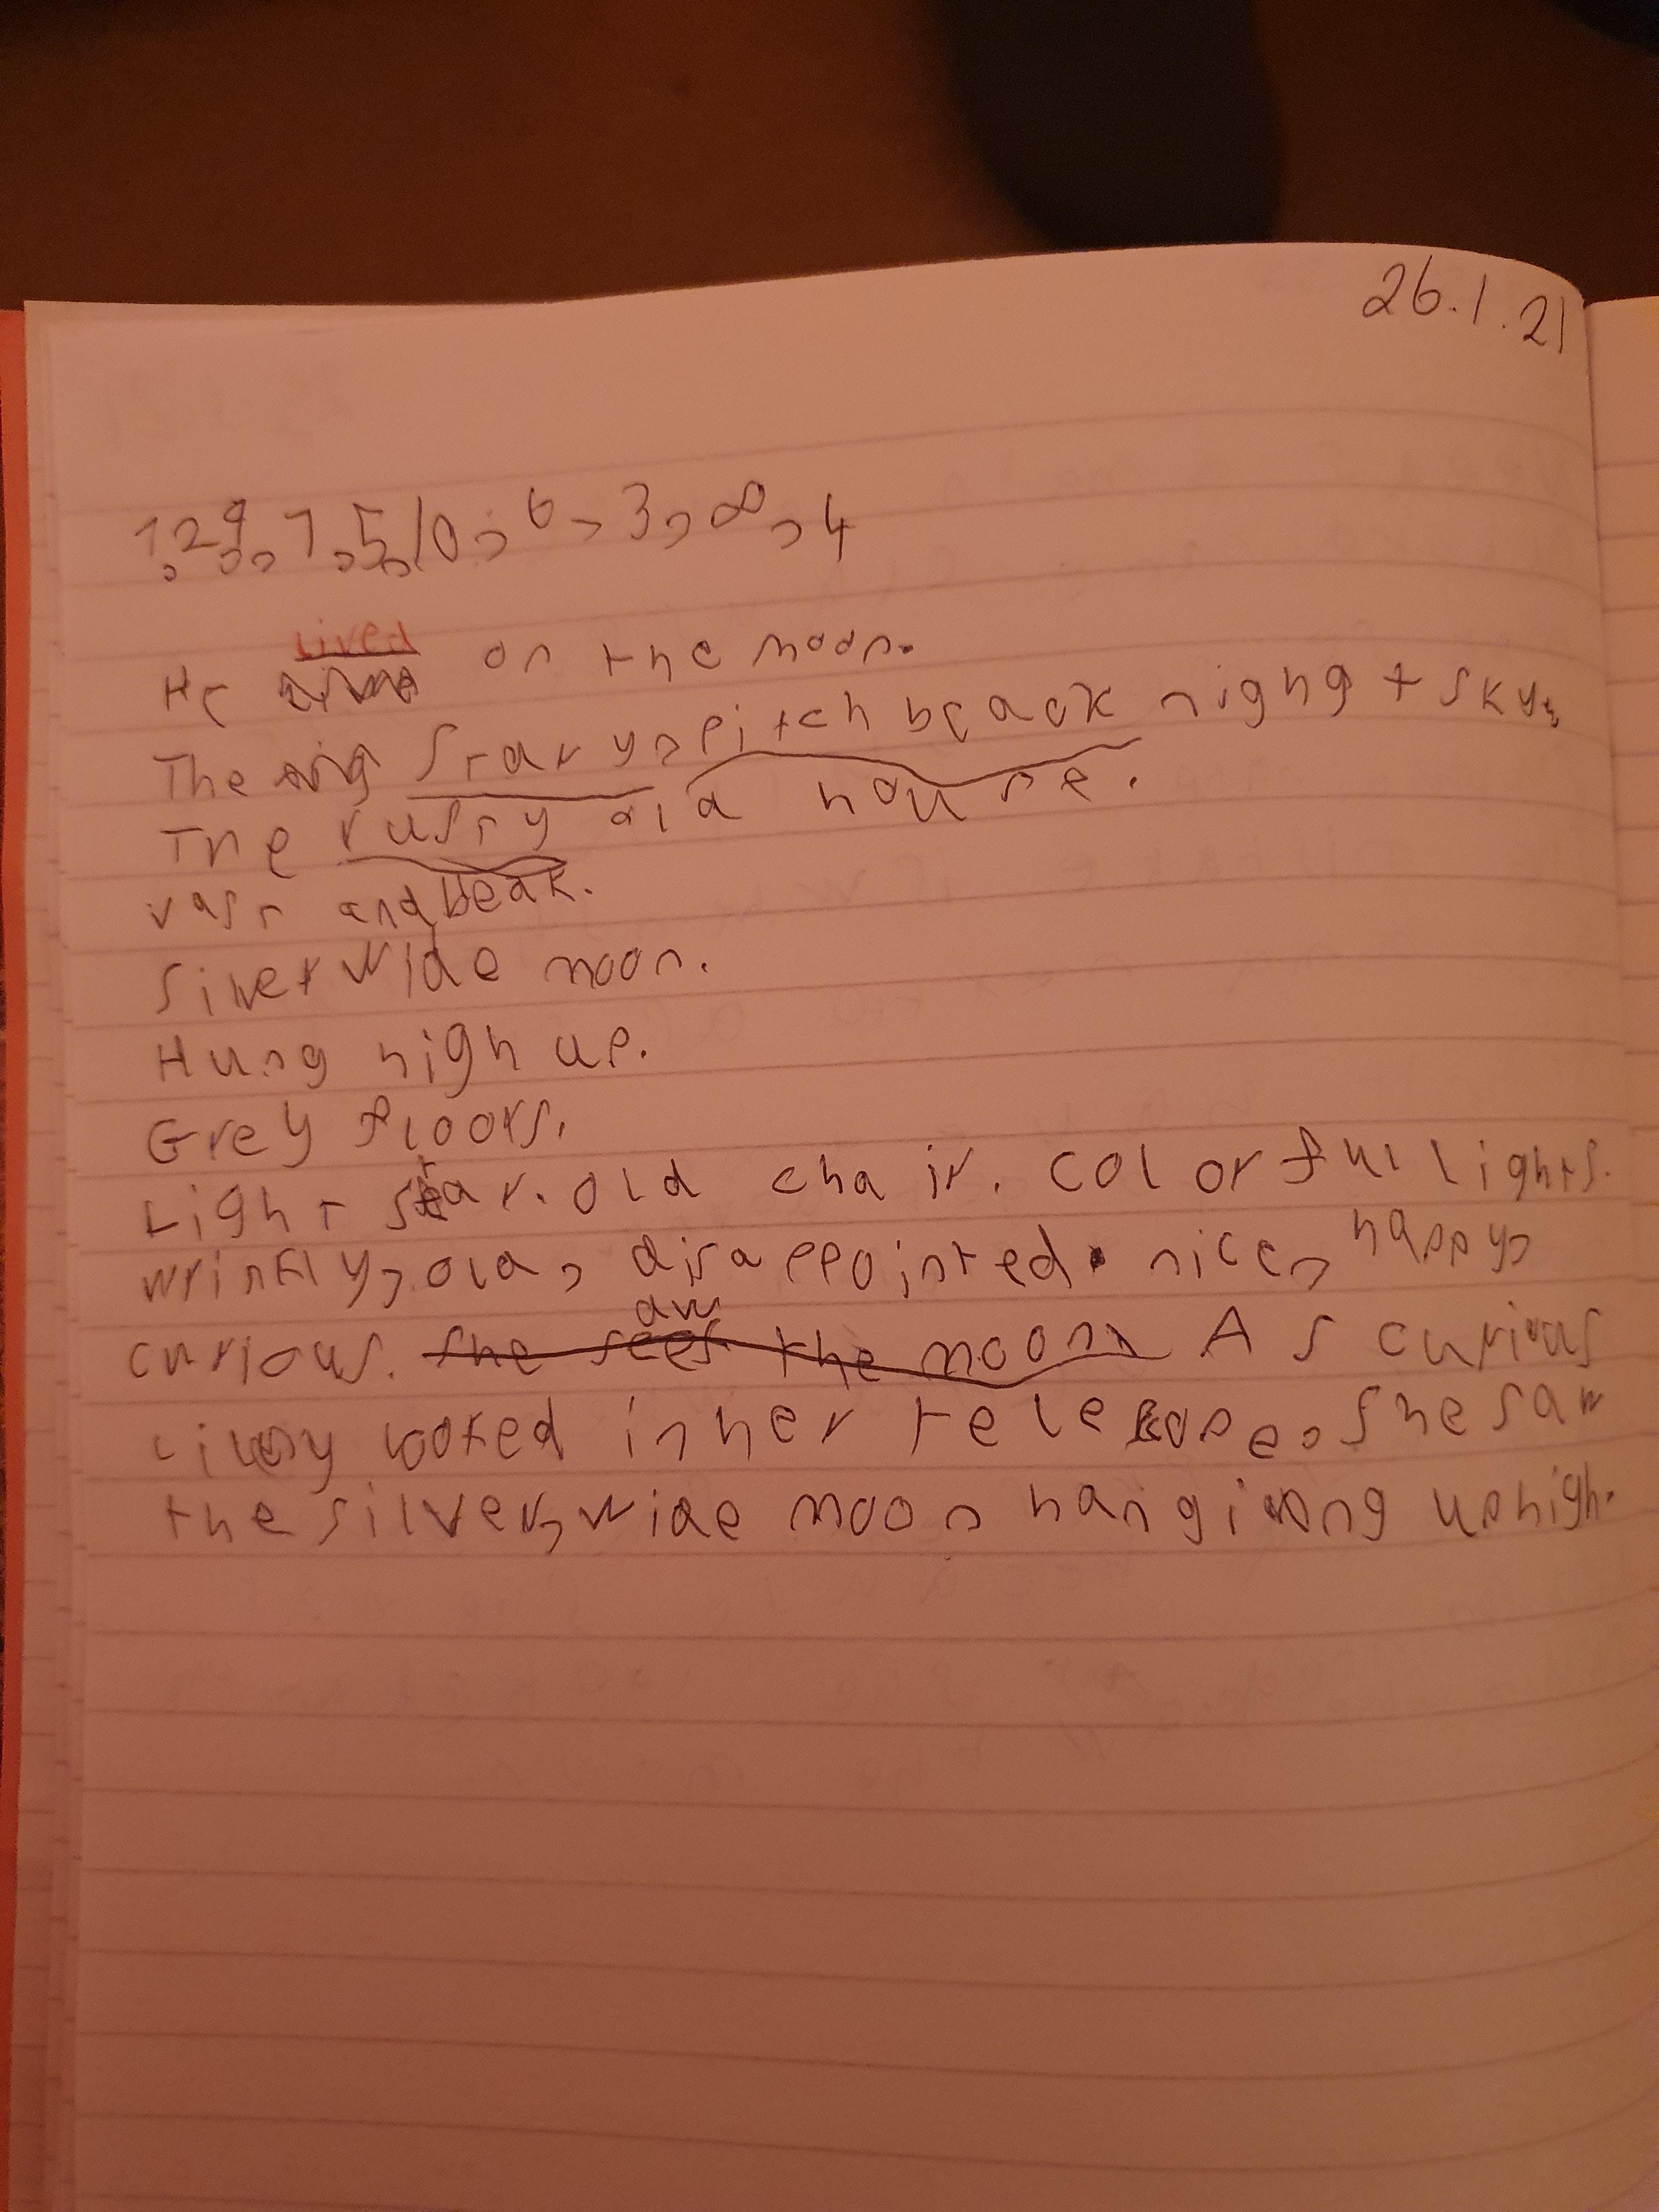 26.1.21
1,2,9,7,5,10,6,3,8,4
lived
He on the moon.
The stary, pitch beack nighgt sky,
The rusty old house.
vast and beak.
Silver wide moon.
Hung high up.
Grey floors.
Light star. old chair. colorful lights.
wrinkly, old, disappointed. nice, happy,
aw
curious. she sees the moon A s curious
looked in her telescope, she saw
the silver, wide moon hanging up high.